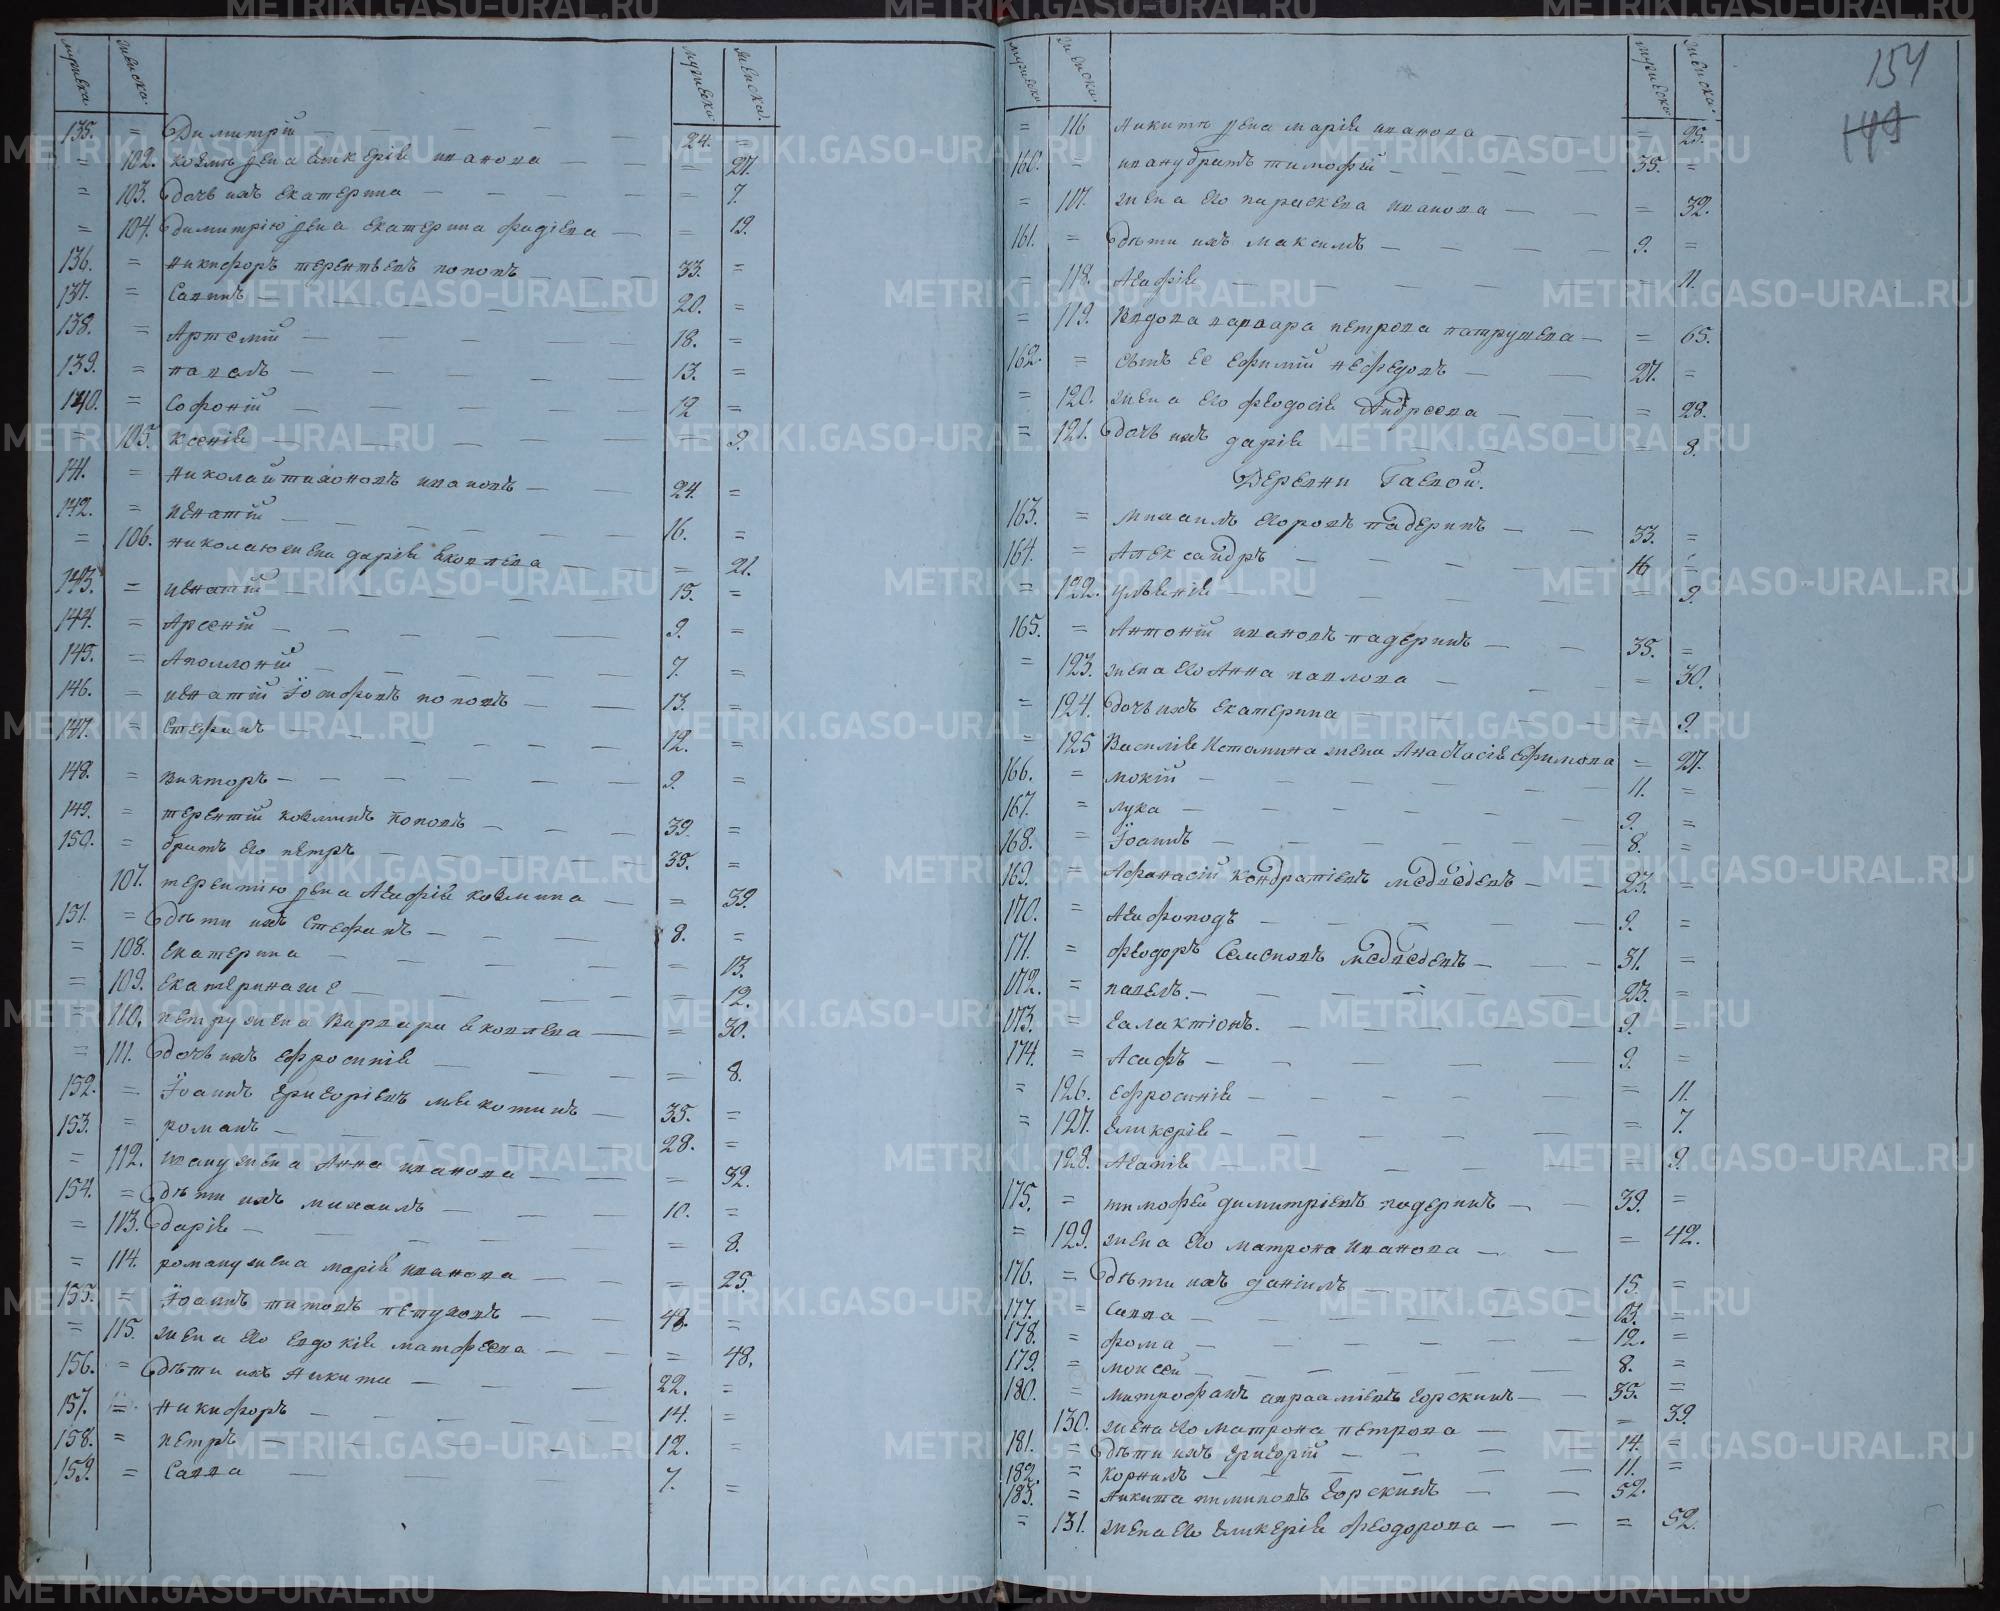 мужеска. женска. мужеска. женска.
135. = Димитрій 24. =
= 102. козмѣ жена Гликерія иванова = 27.
= 103. дочь ихъ Екатерина = 7.
= 104. Димитрію жена Екатерина фадіева = 19.
136. = никифоръ терентьевъ поповъ 33. =
137. = Савинъ 20. =
138. = Артемій 18. =
139. = павелъ 13. =
140. = Софоній 12 =
= 105. ксенія = 9.
141. = николай тихоновъ ивановъ 24. =
142. = игнатій 16. =
= 106. николаю жена дарія яковлева = 21.
143. = игнатій 15. =
144. = Арсеній 9. =
145. = Аполлоній 7. =
146. = игнатій Іосифовъ поповъ 13. =
147. = Стефанъ 12. =
148. = викторъ 9. =
149. = терентій козминъ поповъ 39. =
150. = братъ его петръ 35. =
107. терентію жена Агафія козмина = 39.
151. = дѣти ихъ Стефанъ 8. =
= 108. екатерина = 13.
= 109. екатерина же = 12.
= 110. петру жена Варвара яковлева = 30.
= 111. дочь ихъ ефросинія = 8.
152. = Іоаннъ григоріевъ мякотинъ 35. =
153. = романъ 28. =
= 112. ивану жена Анна иванова = 32.
154. = дѣти ихъ михаилъ 10. =
= 113. дарія = 8.
= 114. роману жена марія иванова = 25.
155. = Іоаннъ титовъ петуховъ 48. =
= 115. жена его евдокія матфеева = 48.
156. = дѣти ихъ никита 22. =
157. = никифоръ 14. =
158. = петръ 12. =
159. = Савва 7. =
154
149
мужеска. женска. мужеска. женска.
= 116 никитѣ жена марія иванова = 25.
160. = ивану братъ тимофей 35. =
= 117. жена его параскева иванова = 32.
161. = дѣти ихъ максимъ 9. =
= 118. Агафія = 11.
= 119. Вдова варвара петрова патрушева = 65.
162. = сынъ ее ефимій нефедовъ 27. =
= 120. жена его феодосія Андреева = 28.
= 121. дочь ихъ дарія = 8.
Деревни Гаевой.
163. = михаилъ егоровъ падеринъ 33. =
164. = Александръ 16 =
= 122. ульянія = 9.
165. = Антоній ивановъ падеринъ 35. =
= 123. жена его Анна павлова = 30.
= 124. дочь ихъ екатерина = 9.
= 125 Василія Истомина жена Анастасія Ефимова = 27.
166. = мокій 11. =
167. = лука 9. =
168. = Іоаннъ 8. =
169. = Афанасій кондратіевъ медведевъ 23. =
170. = Агафоподъ 9. =
171. = феодоръ Семеновъ медведевъ 31. =
172. = павелъ. 23. =
173. = галактіонъ. 9. =
174. = Асафъ 9. =
= 126. ефросинія = 11.
= 127. гликерія = 7.
= 128. Агапія = 9.
175. = тимофей димитріевъ падеринъ 39. =
= 129. жена его матрона иванова = 42.
176. = дѣти ихъ даніилъ 15. =
177. = Савва 13. =
178. = фома 12. =
179. = моисей 8. =
180. = митрофанъ авраамовъ горскинъ 35. =
130. жена его матрона петрова = 39.
181. = дѣти ихъ григорій 14. =
182. = корнилъ 11. =
183. = никита пиминовъ горскинъ 52.
= 131. жена его гликерія феодорова = 52.
METRIKI.GASO-URAL.RU